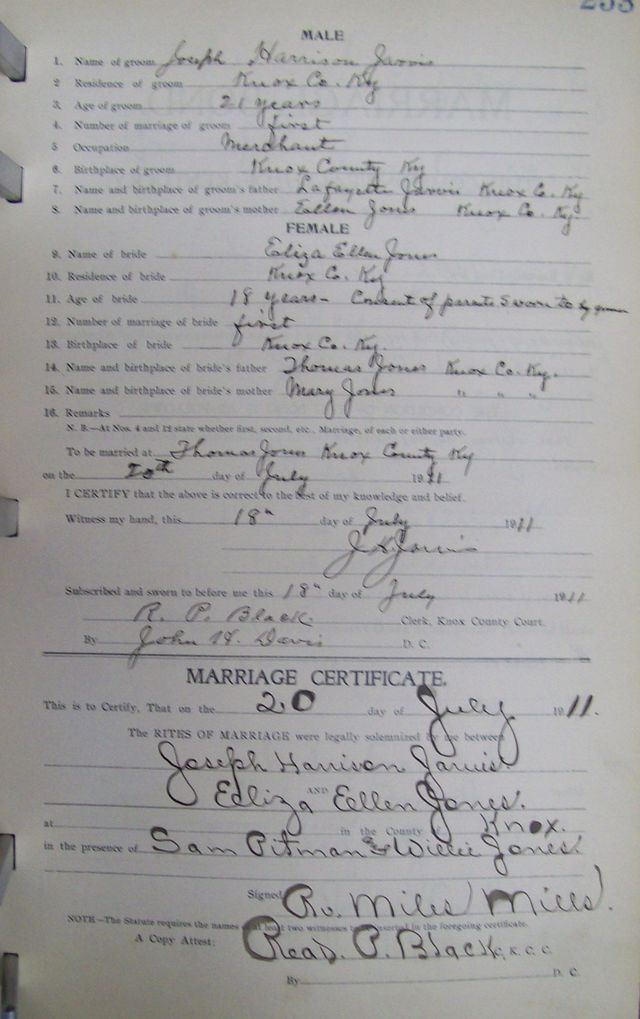 253
MALE
1. Name of groom Joseph Harrison Jarvis
2 Residence of groom Knox Co. Ky
3. Age of groom 21 years
4. Number of marriage of groom first
5 Occupation Merchant
6. Birthplace of groom Knox County Ky
7. Name and birthplace of groom's father Lafayette Jarvis Knox Co. Ky
8. Name and birthplace of groom's mother Eallen Jones Knox Co. Ky.
FEMALE
9. Name of bride Eliza Ellen Jones
10. Residence of bride Knox Co. Ky
11. Age of bride 18 years - Consent of parents sworn to by groom
12. Number of marriage of bride first
13. Birthplace of bride Knox Co. Ky.
14. Name and birthplace of bride's father Thomas Jones Knox Co. Ky.
15. Name and birthplace of bride's mother Mary Jones " " "
16. Remarks
N. B.—At Nos. 4 and 12 state whether first, second, etc., Marriage, of each or either party.
To be married at Thomas Jones Knox County Ky
on the 20th day of July 1911
I CERTIFY that the above is correct to the best of my knowledge and belief.
Witness my hand, this 18th day of July 1911
J H Jarvis
Subscribed and sworn to before me this 18th day of July 1911
R. P. Black Clerk, Knox County Court.
By John H. Davis D. C.
MARRIAGE CERTIFICATE.
This is to Certify, That on the 20 day of July 1911.
The RITES OF MARRIAGE were legally solemnized by me between
Joseph Harrison Jarvis.
AND
Edliza Eellen Jones.
at in the County of Knox.
in the presence of Sam Pitman & Willie Jones.
Signed Rv. Miles Mills.
NOTE—The Statute requires the names of at least two witnesses be inserted in the foregoing certificate.
A Copy Attest: Read. P. Black C. K. C. C.
By D. C.